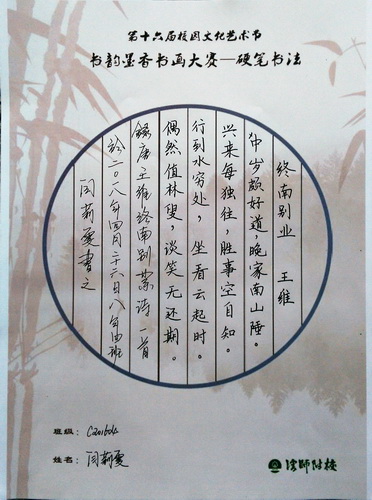 第十六届校园文化艺术节
书韵墨香书画大赛—硬笔书法
终南别业 王维
中岁颇好道，晚家南山陲。
兴来每独往，胜事空自知。
行到水穷处，坐看云起时。
偶然值林叟，谈笑无还期。
錄唐王维终南别業诗一首
於二〇一八年四月二十六日八年四班
闫莉雯書之
班级：C201604
姓名：闫莉雯
附校